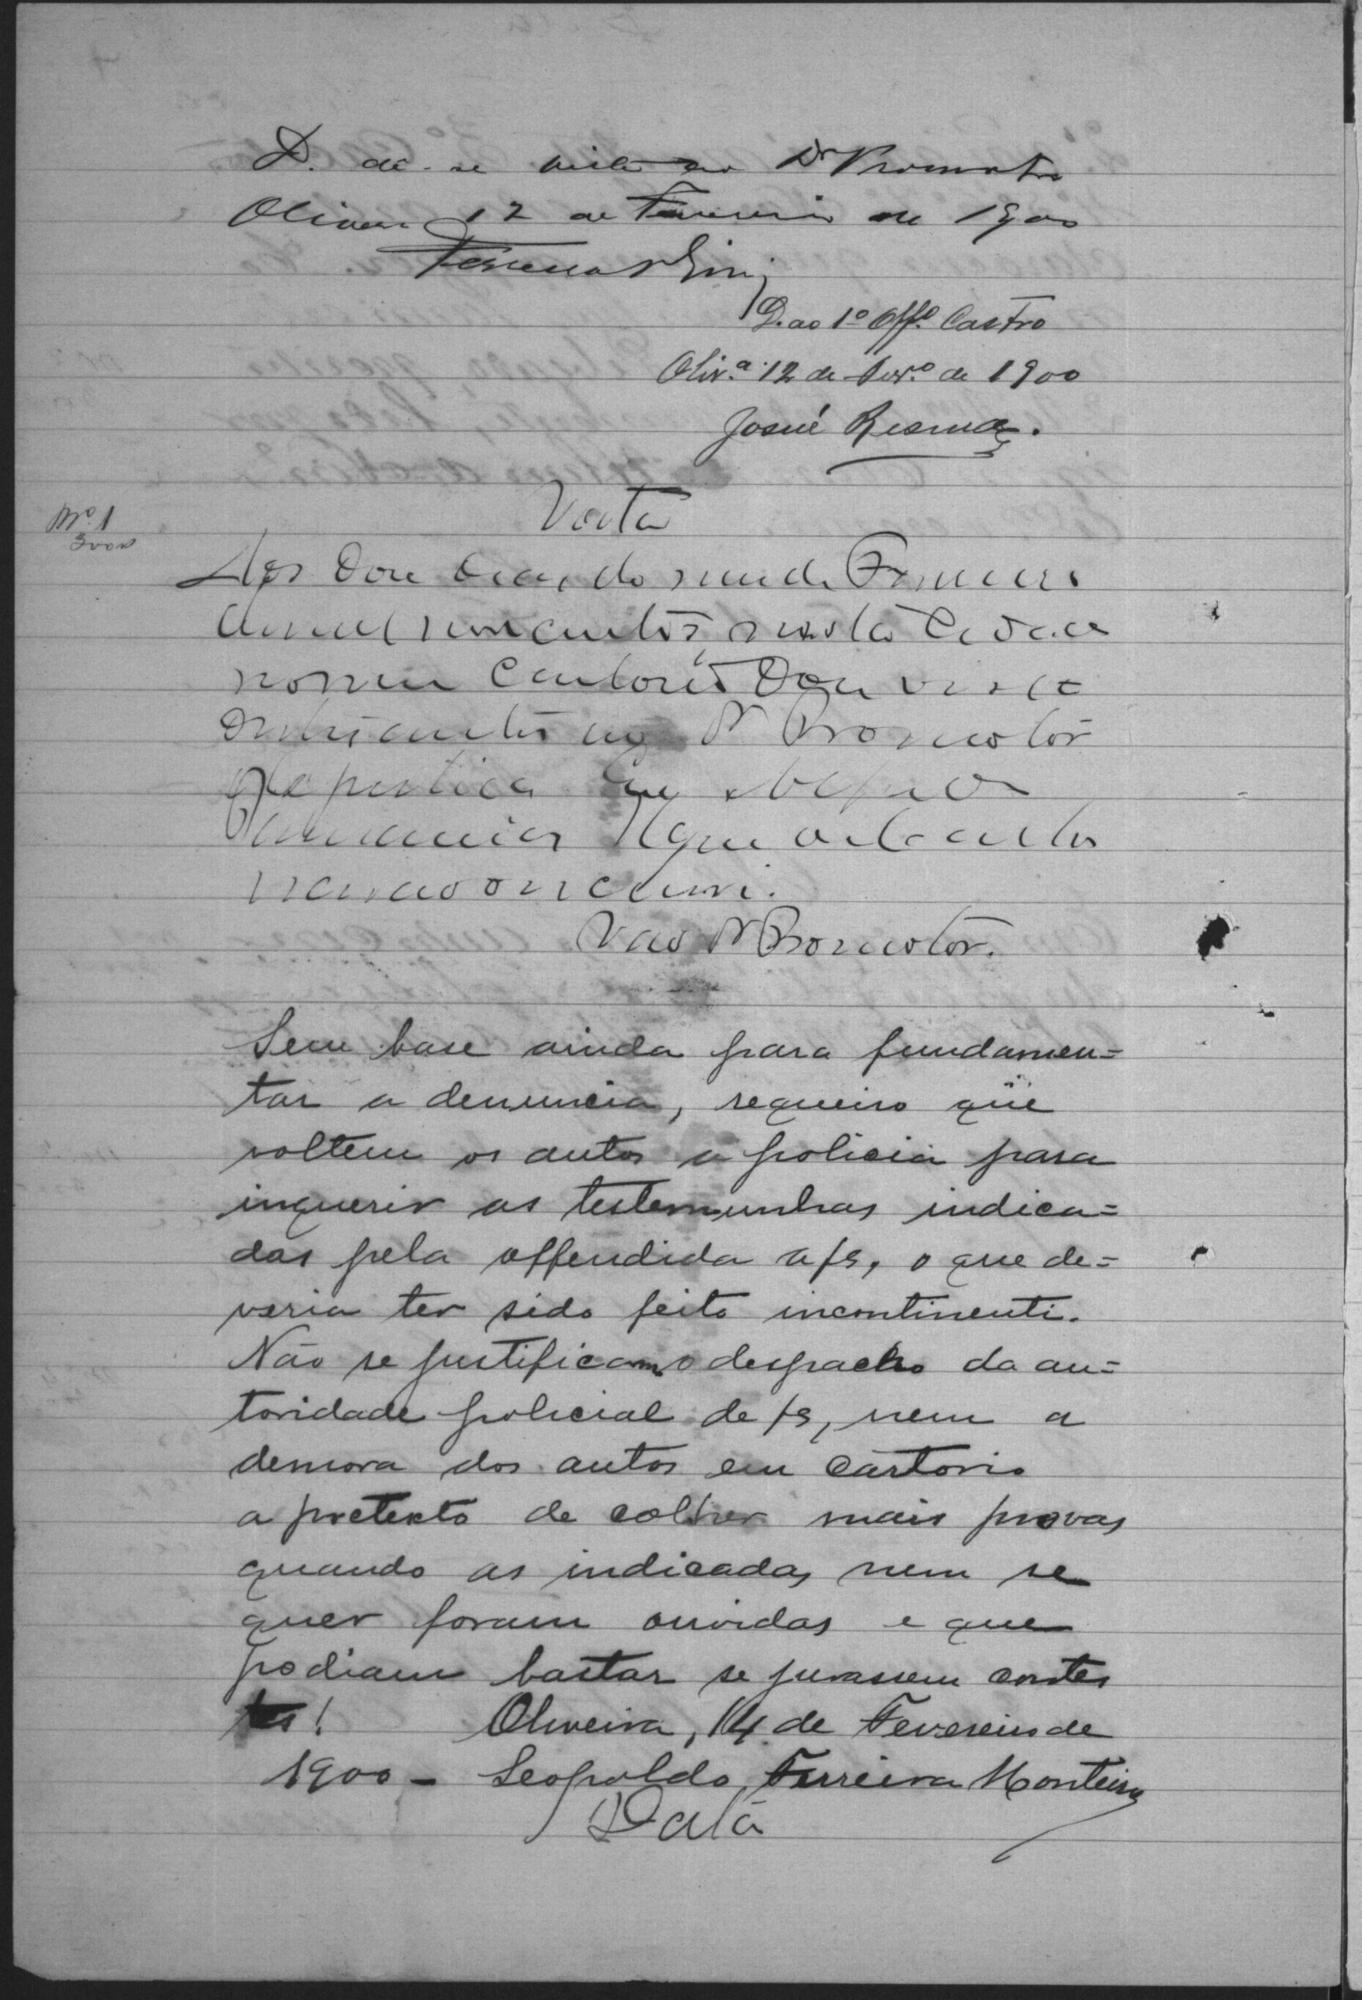 D. dê-se vista ao Dr Promotor
Oliveira 12 de Fevereiro de 1900
Ferreira
D. ao 1º Offº Castro
Olivª 12 de Fevrº de 1900
Josué Resende.
Nº 1
3000
Vista
Aos Doze dias do mez de Fevereiro
de mil novecentos, nesta Cidade
no meu Cartorio Dou vista
destes autos ao Dr Promotor
da justiça
que este auto
Vao Dr Promotor.
Sem base ainda para fundamen=
tar a denuncia, requeiro que
voltem os autos a policia para
inquerir as testemunhas indica=
das pela offendida a fs, o que de=
veria ter sido feito incontinenti.
Não se justificam o despacho da au=
toridade policial de fs, nem a
demora dos autos em Cartorio
a pretexto de colher mais provas
quando as indicadas nem se
quer foram ouvidas e que
podiam bastar se jurassem contes
tes! Oliveira, 14 de Fevereiro de
1900 - Leopoldo Ferreira Monteiro
Data